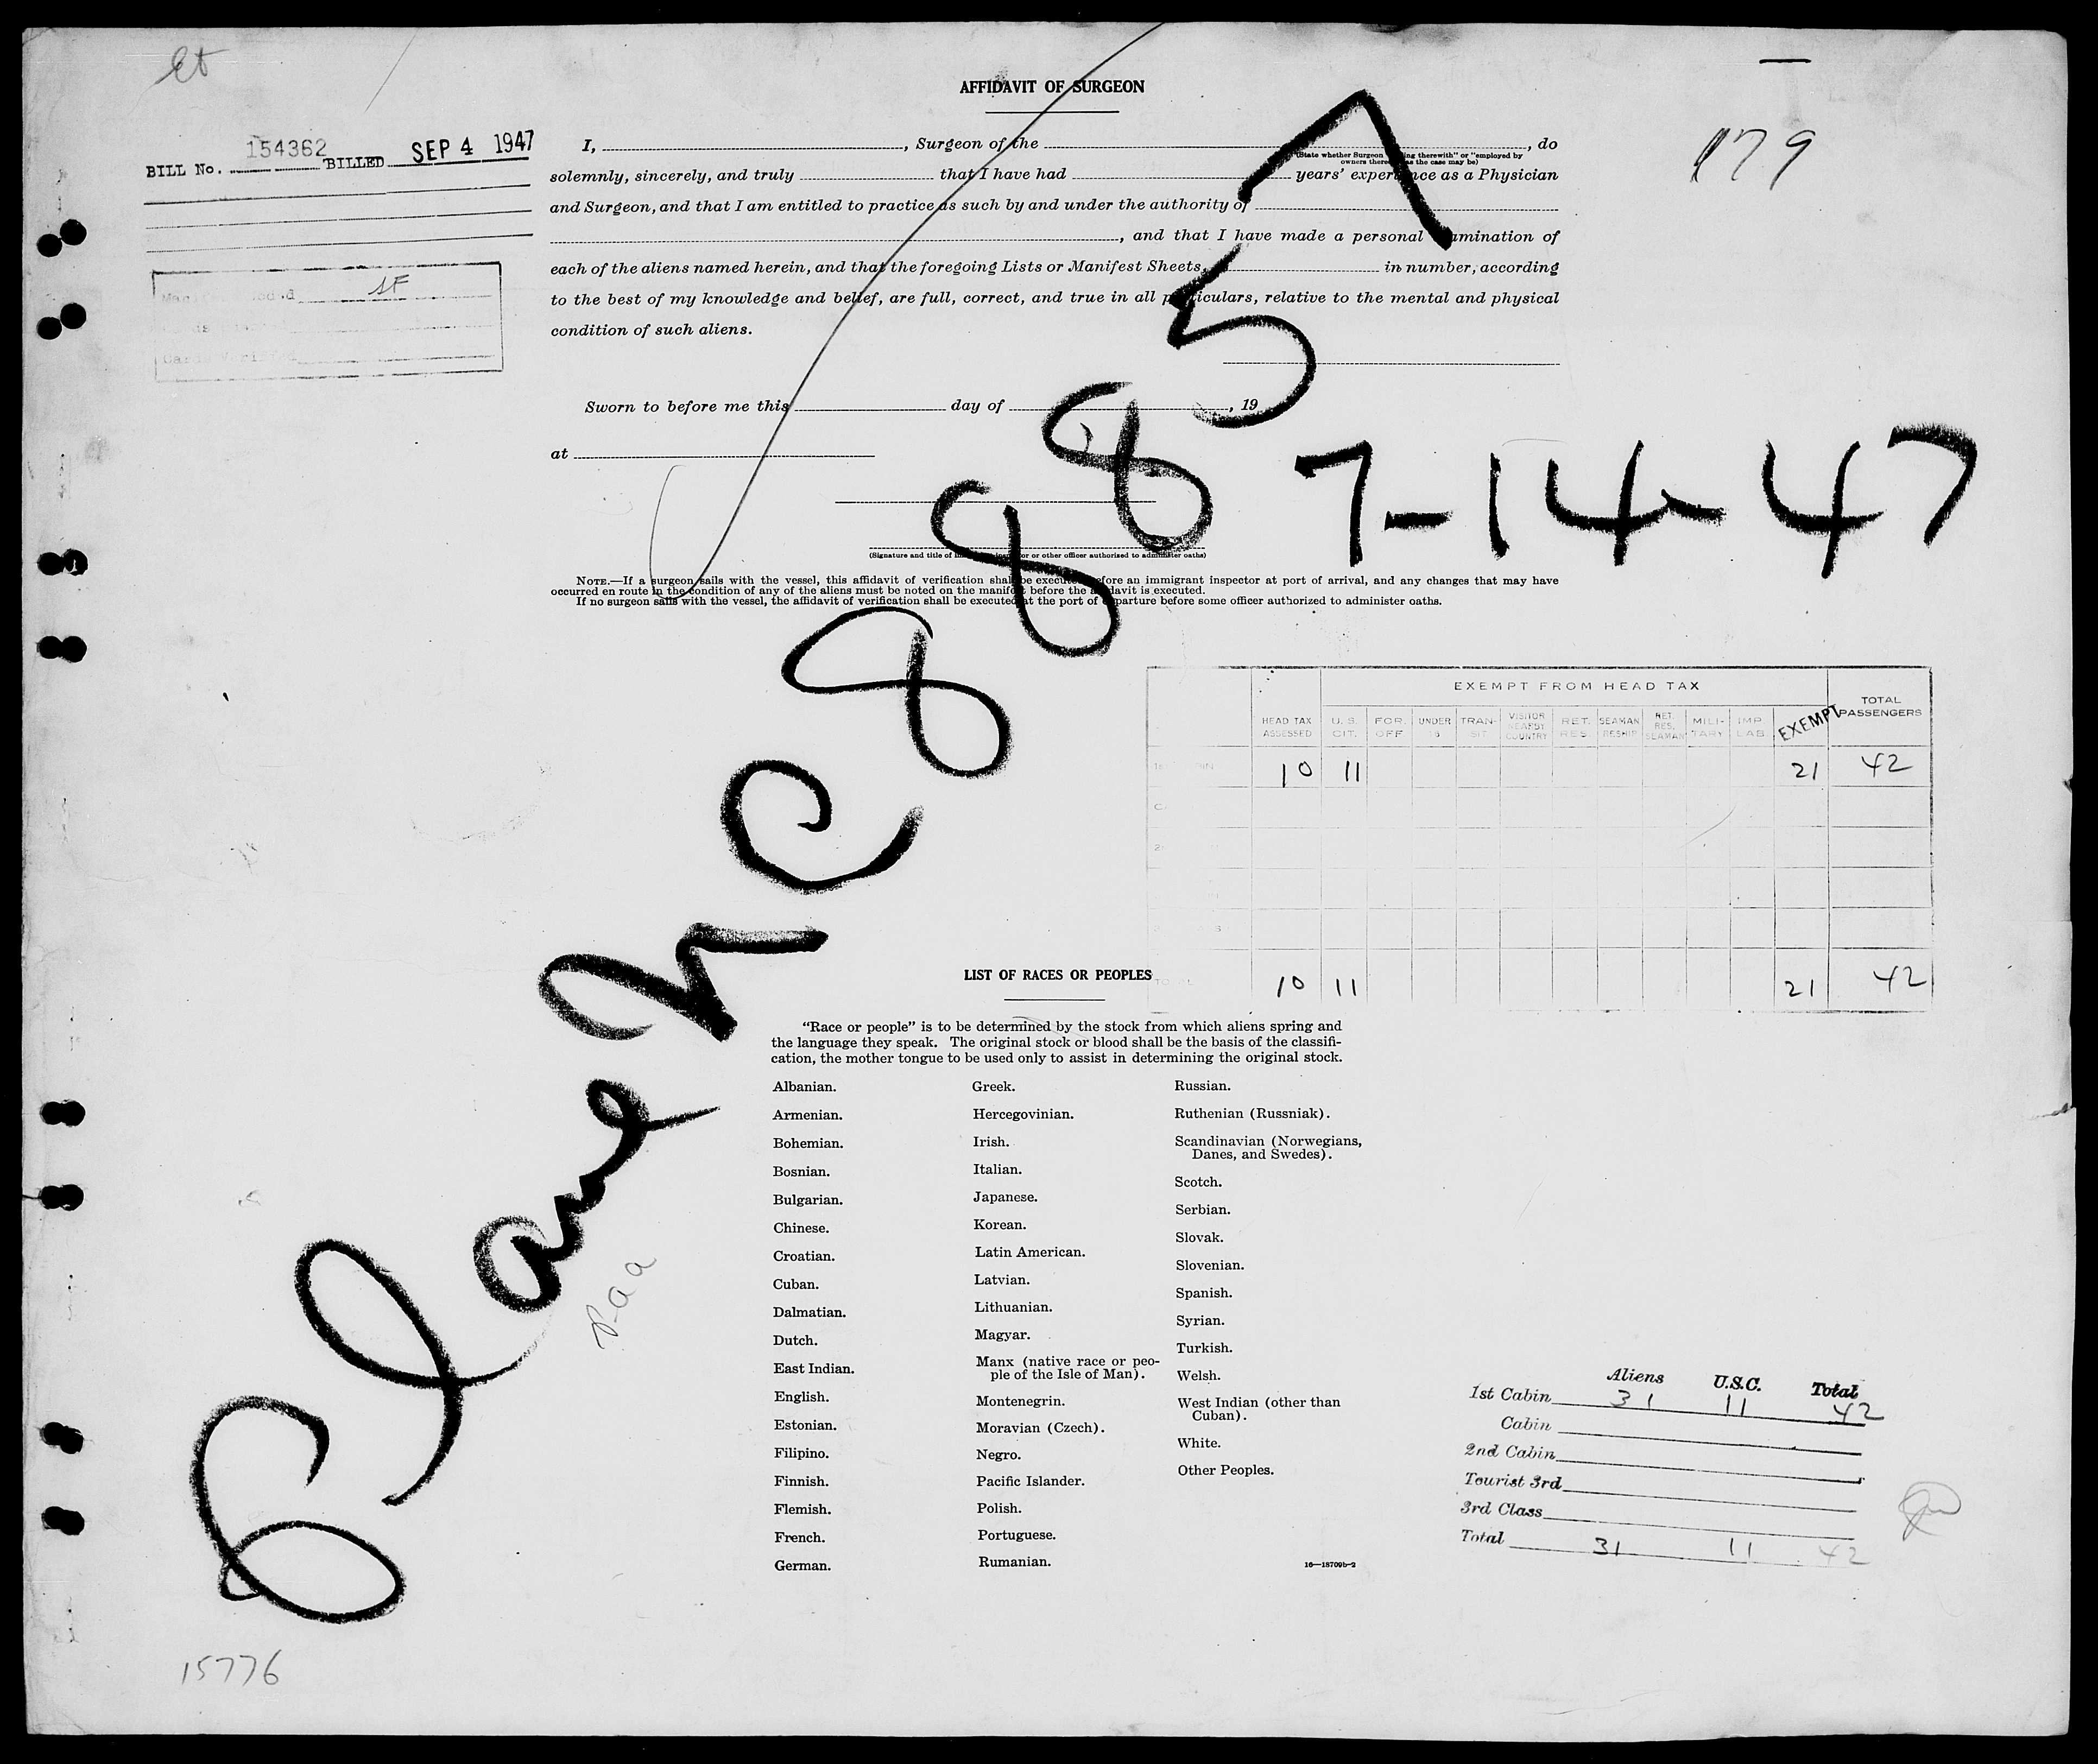 et
AFFIDAVIT OF SURGEON
179
BILL No. 154362 BILLED SEP 4 1947
I, , Surgeon of the , do
(State whether Surgeon ing therewith" or "employed by
owners there as the case may be)
solemnly, sincerely, and truly that I have had years' experience as a Physician
and Surgeon, and that I am entitled to practice as such by and under the authority of
, and that I have made a personal amination of
each of the aliens named herein, and that the foregoing Lists or Manifest Sheets, in number, according
to the best of my knowledge and belief, are full, correct, and true in all particulars, relative to the mental and physical
condition of such aliens.
SF
Sworn to before me this day of , 19
at
(Signature and title of or other officer authorized to administer oaths)
NOTE.—If a surgeon sails with the vessel, this affidavit of verification shall be executed before an immigrant inspector at port of arrival, and any changes that may have
occurred en route in the condition of any of the aliens must be noted on the manifest before the affidavit is executed.
If no surgeon sails with the vessel, the affidavit of verification shall be executed at the port of departure before some officer authorized to administer oaths.
Plane NC 88857
7-14-47
Paa
EXEMPT FROM HEAD TAX
HEAD TAX ASSESSED U.S. CIT. FOR. OFF UNDER 16 TRANSIT VISITOR NEARBY COUNTRY RET. RES. SEAMAN RESHIP RET. RES. SEAMAN MILITARY IMP. LAB. EXEMPT TOTAL PASSENGERS
10 11 21 42
10 11 21 42
LIST OF RACES OR PEOPLES
"Race or people" is to be determined by the stock from which aliens spring and
the language they speak. The original stock or blood shall be the basis of the classifi-
cation, the mother tongue to be used only to assist in determining the original stock.
Albanian.
Armenian.
Bohemian.
Bosnian.
Bulgarian.
Chinese.
Croatian.
Cuban.
Dalmatian.
Dutch.
East Indian.
English.
Estonian.
Filipino.
Finnish.
Flemish.
French.
German.
Greek.
Hercegovinian.
Irish.
Italian.
Japanese.
Korean.
Latin American.
Latvian.
Lithuanian.
Magyar.
Manx (native race or peo-
ple of the Isle of Man).
Montenegrin.
Moravian (Czech).
Negro.
Pacific Islander.
Polish.
Portuguese.
Rumanian.
Russian.
Ruthenian (Russniak).
Scandinavian (Norwegians,
Danes, and Swedes).
Scotch.
Serbian.
Slovak.
Slovenian.
Spanish.
Syrian.
Turkish.
Welsh.
West Indian (other than
Cuban).
White.
Other Peoples.
16—18709b-2
Aliens U.S.C. Total
1st Cabin 31 11 42
Cabin
2nd Cabin
Tourist 3rd
3rd Class
Total 31 11 42
15776